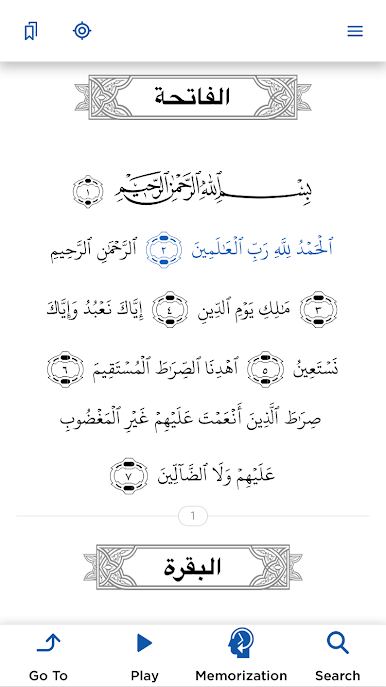 الفاتحة
بِسْمِ ٱللَّهِ ٱلرَّحْمَٰنِ ٱلرَّحِيمِ ١
ٱلْحَمْدُ لِلَّهِ رَبِّ ٱلْعَٰلَمِينَ ٢ ٱلرَّحْمَٰنِ ٱلرَّحِيمِ
٣ مَٰلِكِ يَوْمِ ٱلدِّينِ ٤ إِيَّاكَ نَعْبُدُ وَإِيَّاكَ
نَسْتَعِينُ ٥ ٱهْدِنَا ٱلصِّرَٰطَ ٱلْمُسْتَقِيمَ ٦
صِرَٰطَ ٱلَّذِينَ أَنْعَمْتَ عَلَيْهِمْ غَيْرِ ٱلْمَغْضُوبِ
عَلَيْهِمْ وَلَا ٱلضَّآلِّينَ ٧
1
البقرة
Go To Play Memorization Search